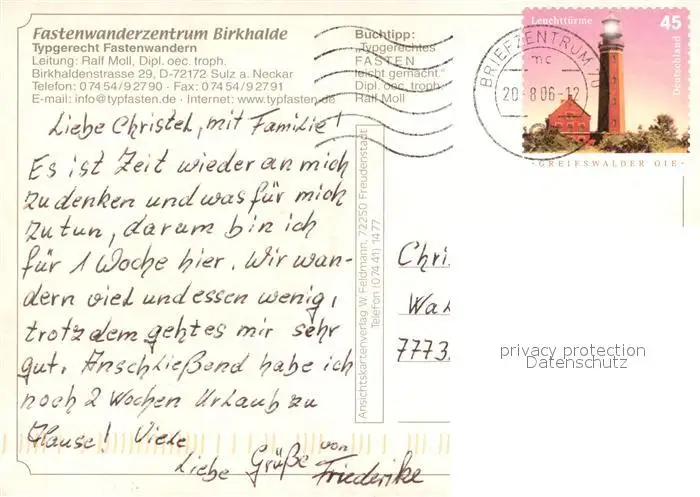 Fastenwanderzentrum Birkhalde
Typgerecht Fastenwandern
Leitung: Ralf Moll, Dipl. oec. troph.
Birkhaldenstrasse 29, D-72172 Sulz a. Neckar
Telefon: 0 74 54/9 27 90 · Fax: 0 74 54/9 27 91
E-mail: info@typfasten.de · Internet: www.typfasten.de
Buchtipp:
„Typgerechtes
FASTEN
leicht gemacht.“
Dipl. oec. troph.
Ralf Moll
Leuchttürme 45
Deutschland
GREIFSWALDER OIE
BRIEFZENTRUM 70
mc
20.8.06-12
Liebe Christel, mit Familie!
Es ist Zeit wieder an mich
zu denken und was für mich
zu tun, darum bin ich
für 1 Woche hier. Wir wan-
dern viel und essen wenig,
trotzdem geht es mir sehr
gut. Anschließend habe ich
noch 2 Wochen Urlaub zu
Hause! Viele
Liebe Grüße von
Friederike
Ansichtskartenverlag W. Feldmann, 72250 Freudenstadt
Telefon (0 74 41) 14 77
Chri
Wal
7773
privacy protection
Datenschutz